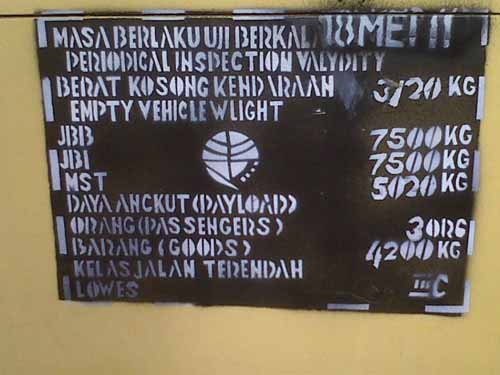 MASA BERLAKU UJI BERKALA 18 MEI 11
PERIODICAL INSPECTION VALYDITY
BERAT KOSONG KENDARAAN 3120 KG
EMPTY VEHICLE WLIGHT
JBB 7500 KG
JBI 7500 KG
MST 5020 KG
DAYA ANGKUT (DAYLOAD)
ORANG (PASSENGERS) 3 ORG
BARANG (GOODS) 4200 KG
KELAS JALAN TERENDAH
LOWES III C